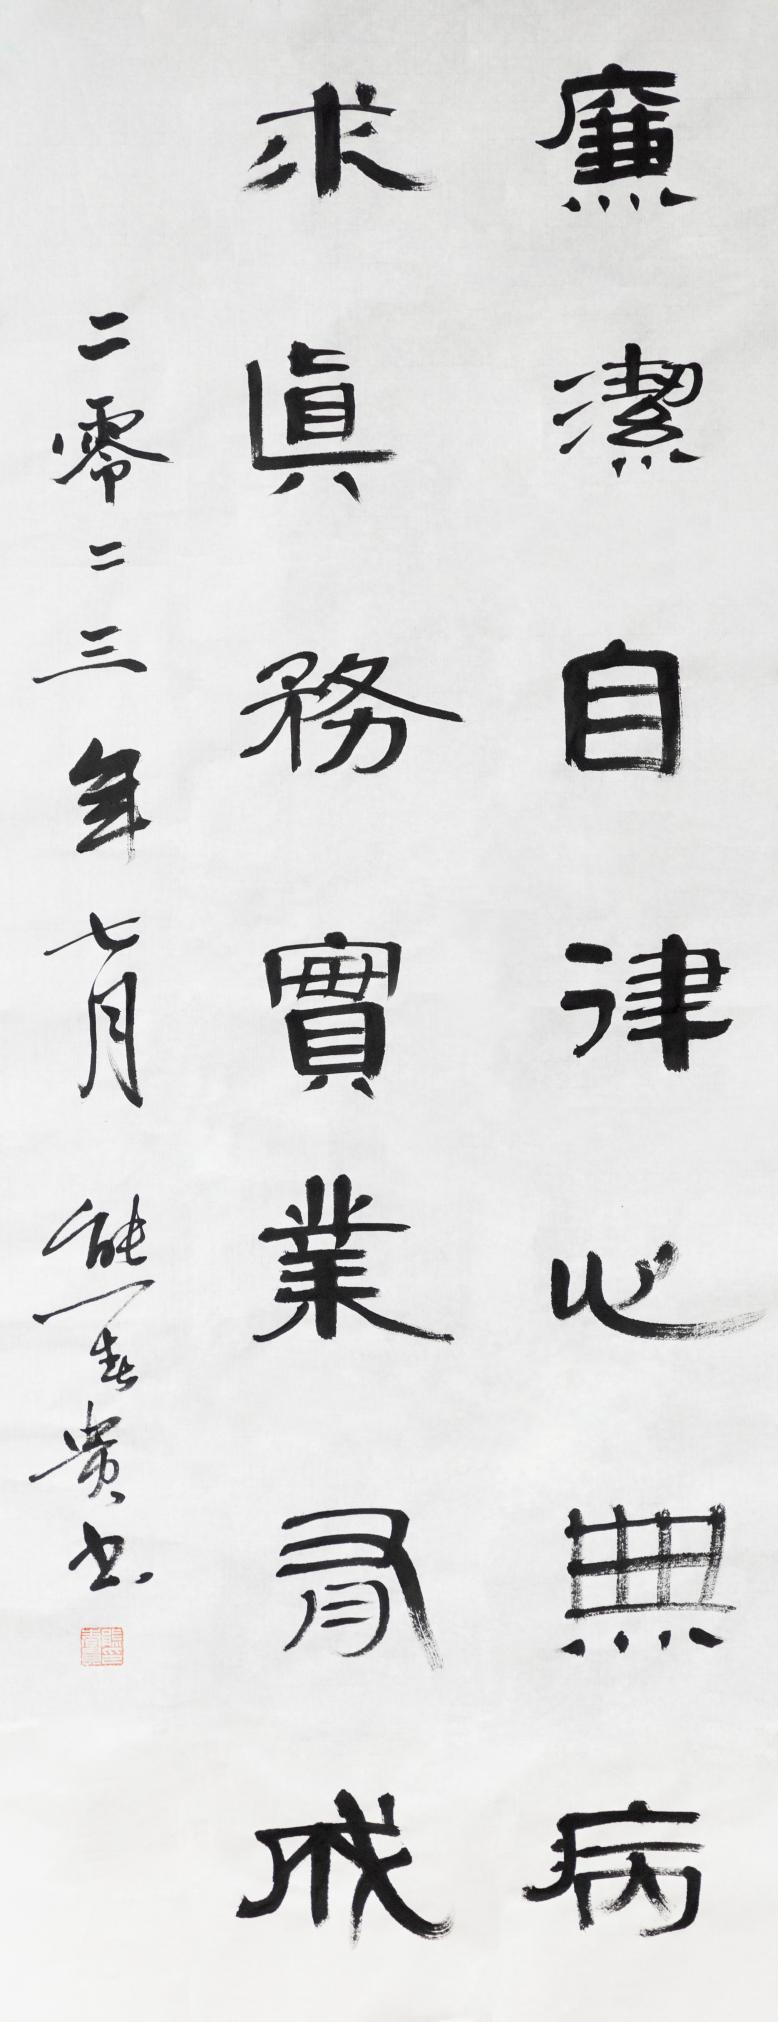 廉潔自律心無病
求真務實業有成
二零二三年七月熊春贵书